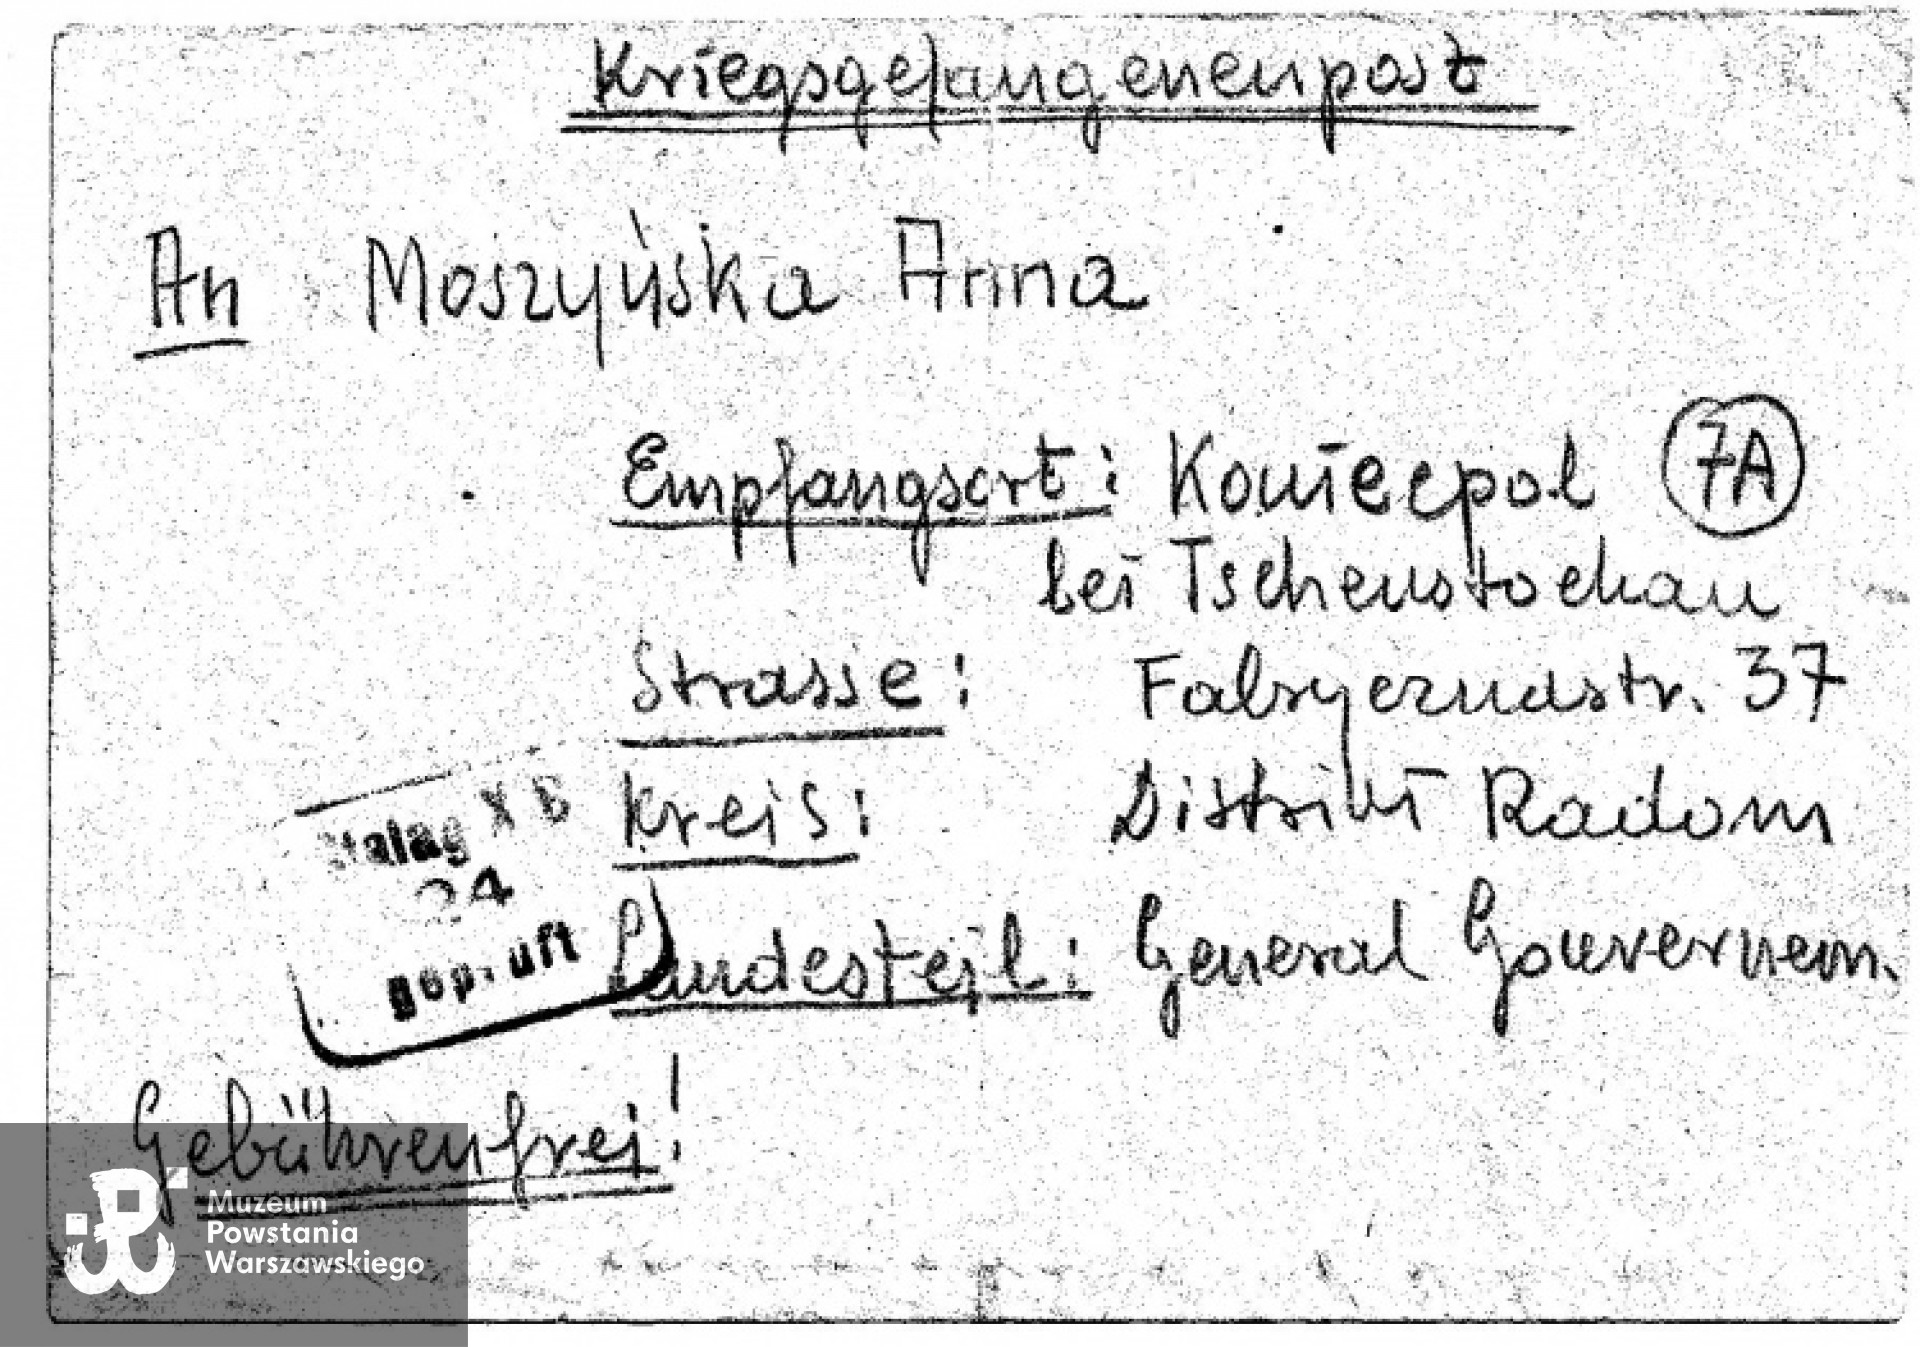 Kriegsgefangenenpost
An Moszyńska Anna
Empfangsort: Koniecpol 7A
bei Tschenstochau
Strasse: Fabryczna str. 37
Kreis: Distrikt Radom
Stalag X B
24
geprüft
Landesteil: General Gouvernem.
Gebührenfrei!
Muzeum
Powstania
Warszawskiego